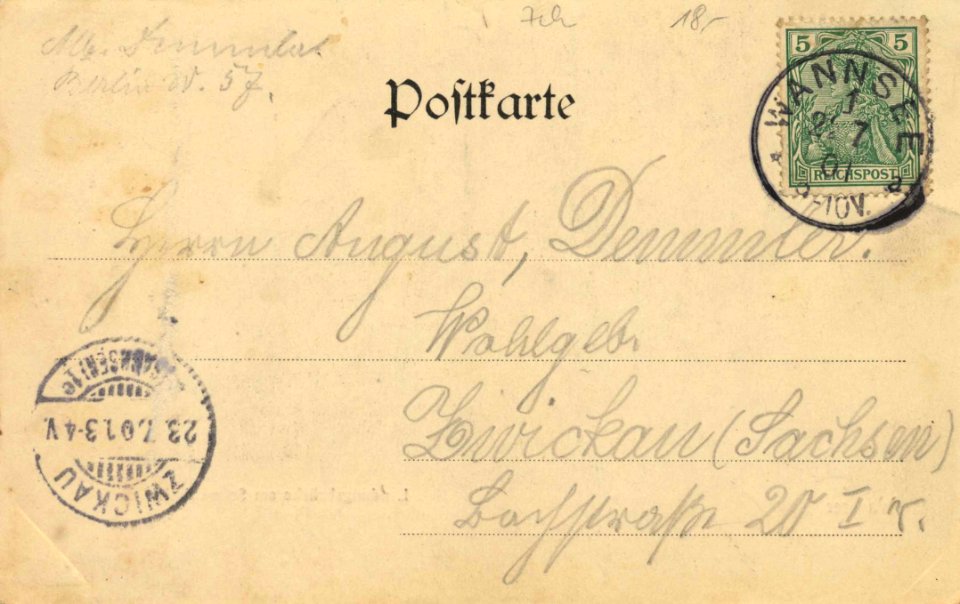 Alb. Demmler
Berlin W. 57.
18,-
Postkarte
5 5
REICHSPOST
WANNSEE
7
01
9-10V.
a
Herrn August, Demmler.
Wohlgeb.
Zwickau (Sachsen)
Bachstraße 20 I r.
ZWICKAU
23.7.01.3-4V.